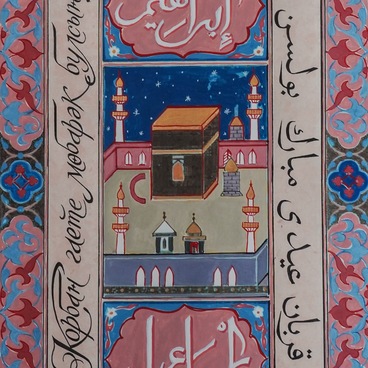 إبراهيم
Корбан гаете мөбарәк булсын
قربان عيدى مبارك بولسن